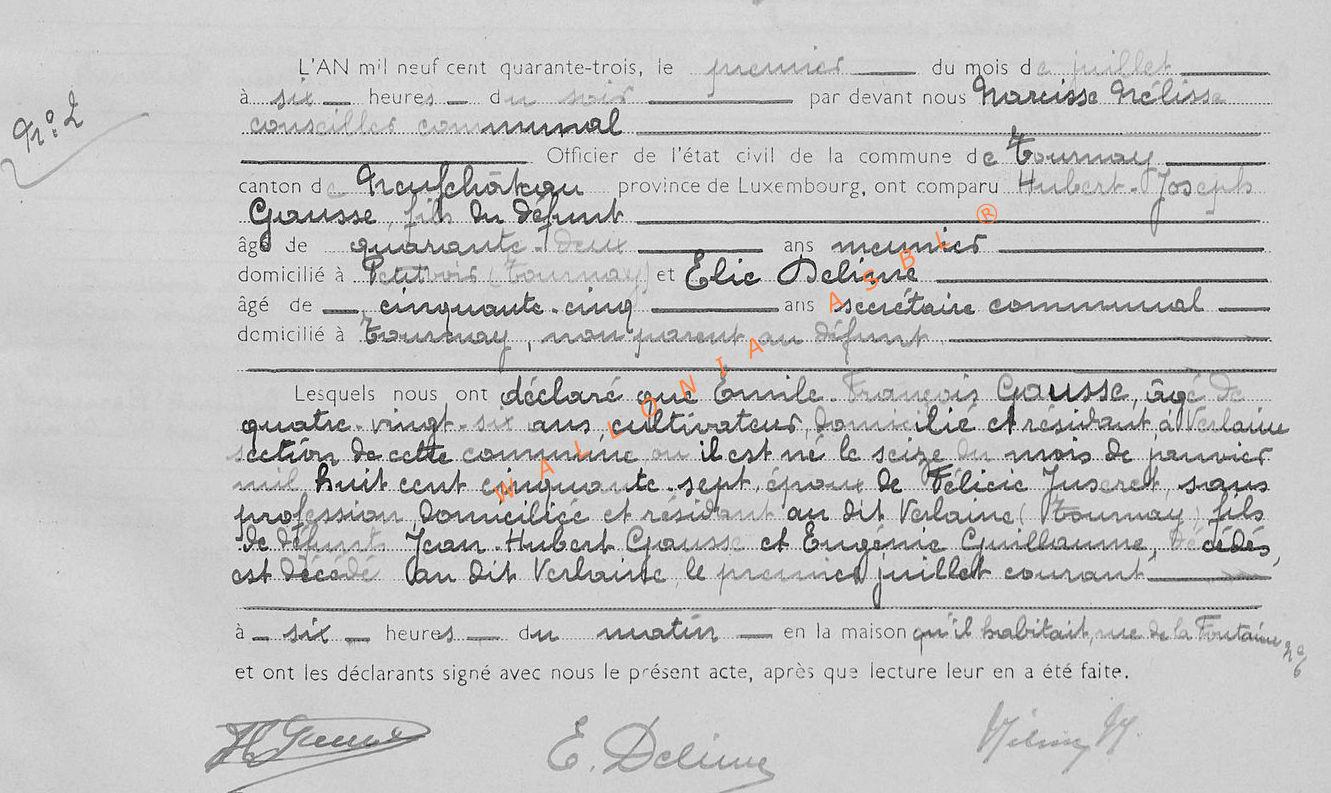 L'AN mil neuf cent quarante-trois, le premier du mois de juillet
à six heures du soir par devant nous Narcisse Nélisse
conseiller communal
Officier de l'état civil de la commune de Tournay
canton de Neufchâteau province de Luxembourg, ont comparu Hubert-Joseph
Gausse, fils du défunt
âgé de quarante-deux ans meunier
domicilié à Petitvoir (Tournay) et Elie Delime
âgé de cinquante-cinq ans secrétaire communal
domicilié à Tournay, non parent au défunt
Nº 2
Lesquels nous ont déclaré que Emile-François Gausse, âgé de
quatre-vingt-six ans, cultivateur, domicilié et résidant, à Verlaine
section de cette commune où il est né le seize du mois de janvier
mil huit cent cinquante-sept, époux de Félicie Juseret, sans
profession, domiciliée et résidant au dit Verlaine (Tournay) fils
de défunts Jean-Hubert Gausse et Eugénie Guillaume, décédés,
est décédé au dit Verlaine, le premier juillet courant
à six heures du matin en la maison qu'il habitait, rue de la Fontaine nº 6
et ont les déclarants signé avec nous le présent acte, après que lecture leur en a été faite.
H Gausse E. Delime N.
WALLONIA ASBL ®